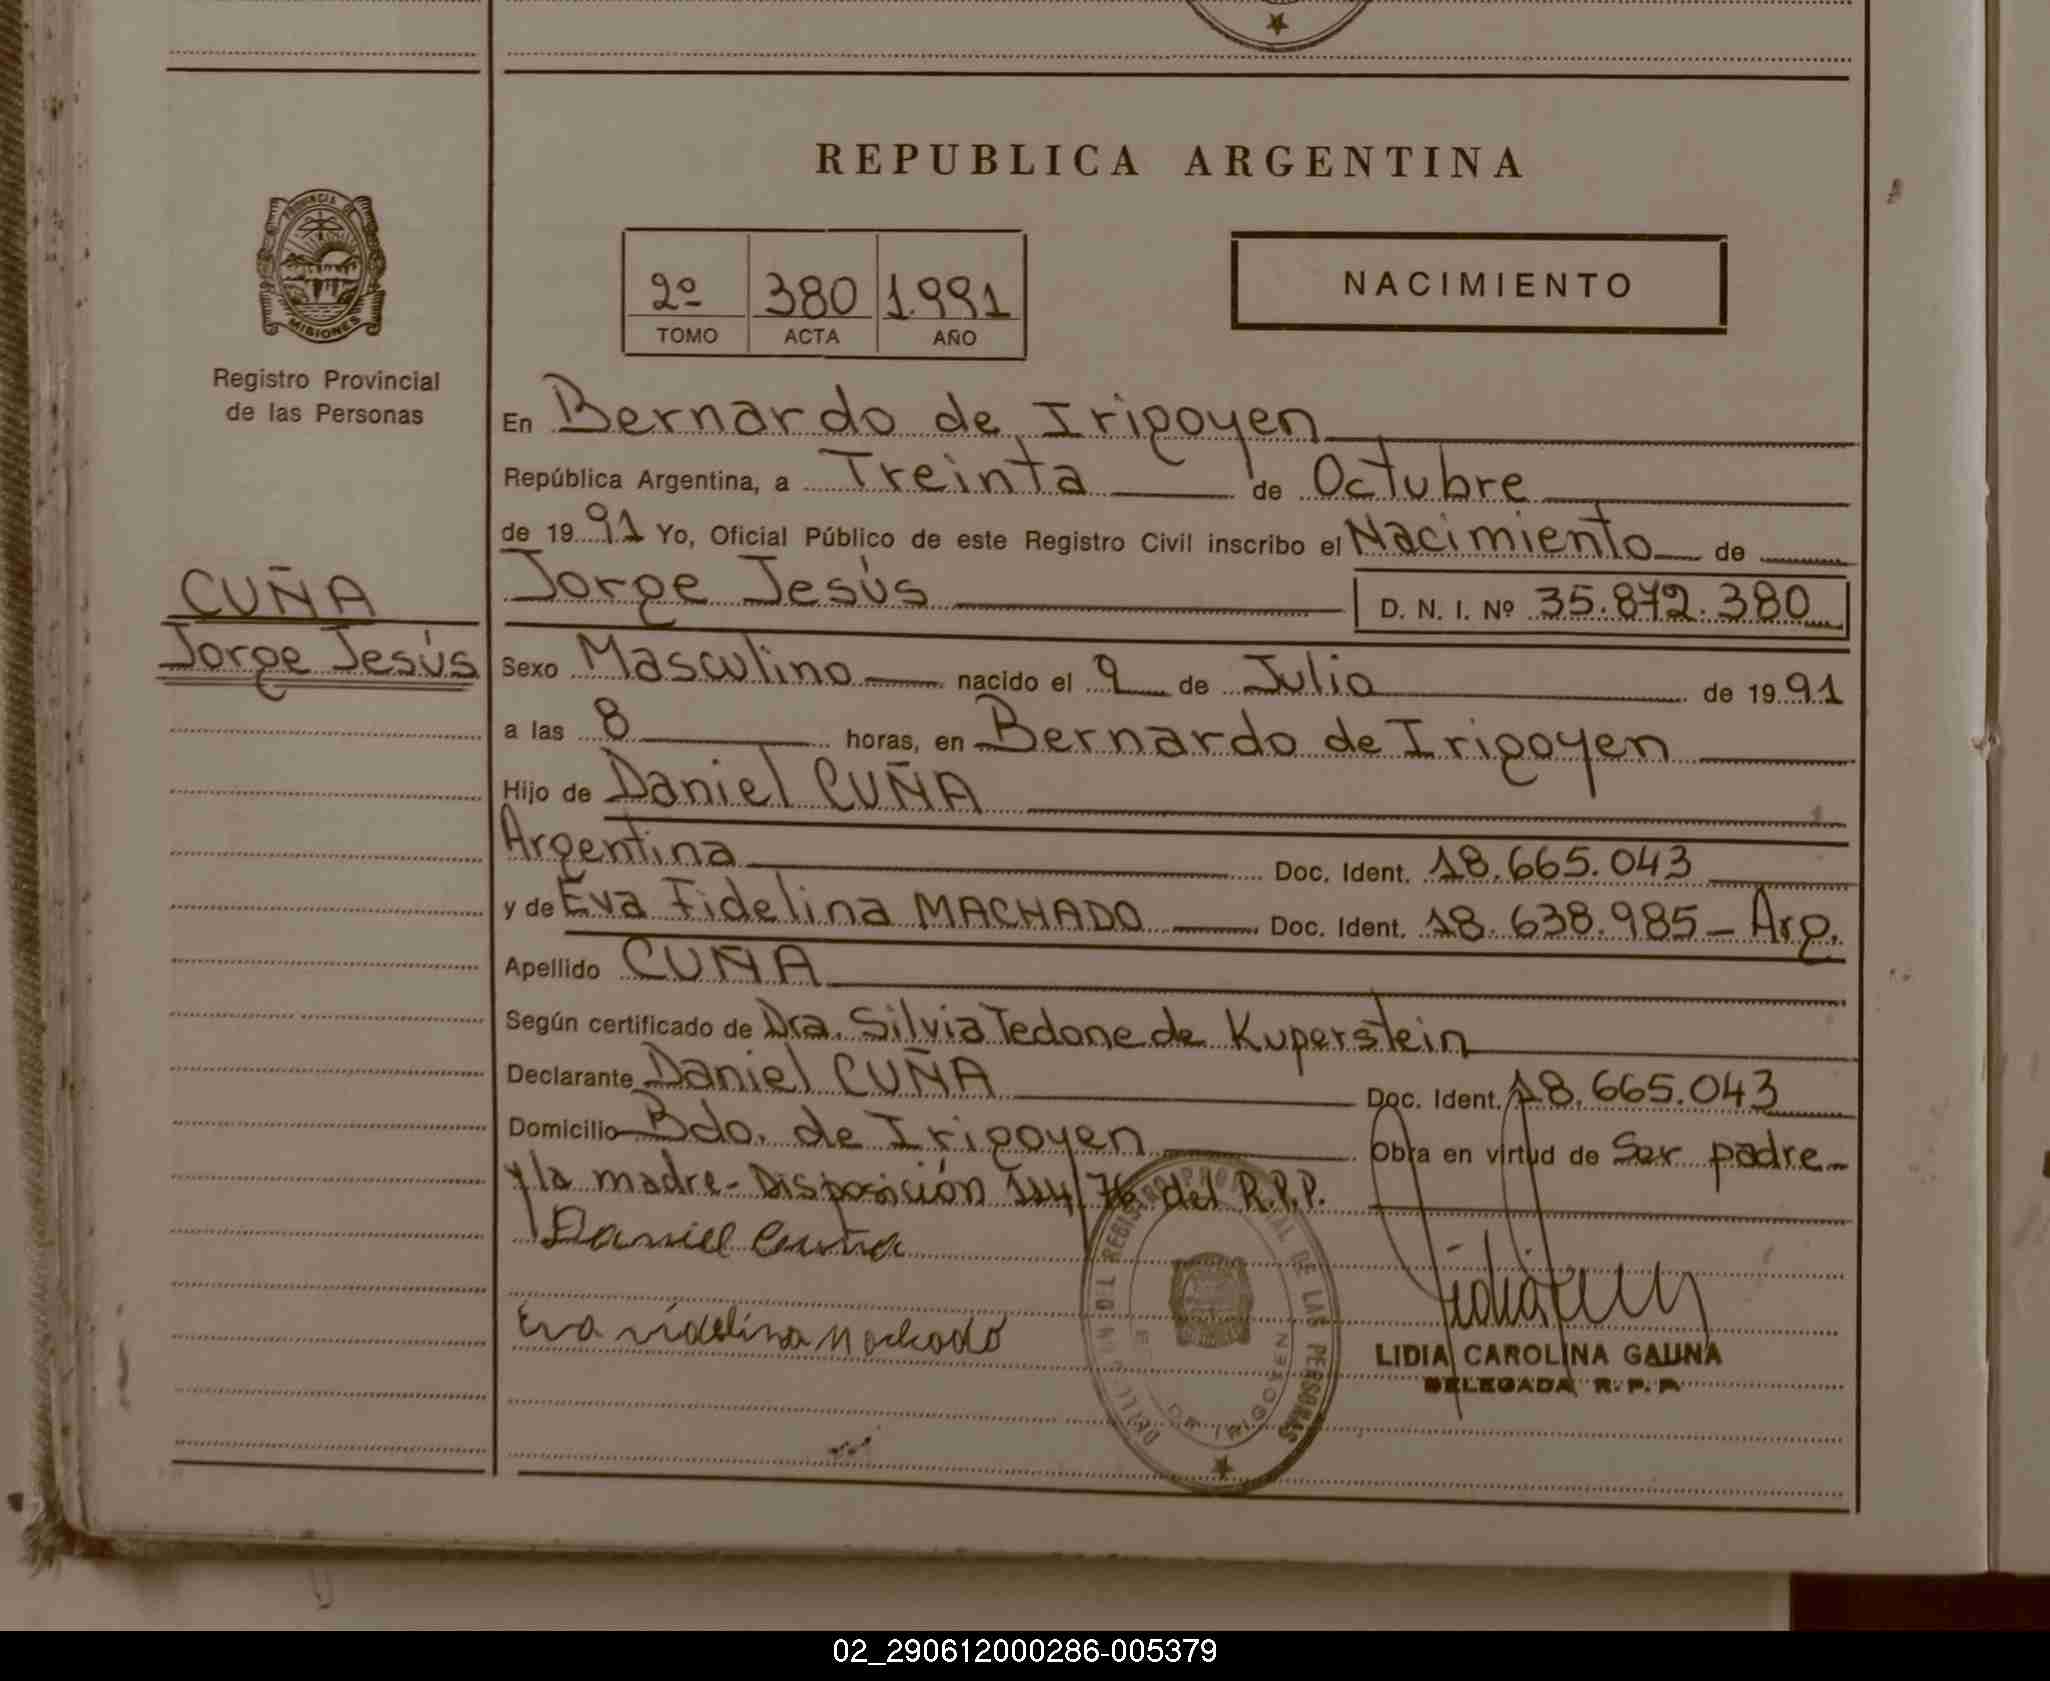 REPUBLICA ARGENTINA
PROVINCIA DE
MISIONES
Registro Provincial
de las Personas
2º 380 1.991
TOMO ACTA AÑO
NACIMIENTO
En Bernardo de Irigoyen
República Argentina, a Treinta de Octubre
de 1991 Yo, Oficial Público de este Registro Civil inscribo el Nacimiento de
CUÑA
Jorge Jesús
Jorge Jesús D. N. I. Nº 35.872.380
Sexo Masculino nacido el 9 de Julio de 1991
a las 8 horas, en Bernardo de Irigoyen
Hijo de Daniel CUÑA
Argentina Doc. Ident. 18.665.043
y de Eva Fidelina MACHADO Doc. Ident. 18.638.985 - Arg.
Apellido CUÑA
Según certificado de Dra. Silvia Tedone de Kuperstein
Declarante Daniel CUÑA Doc. Ident. 18.665.043
Domicilio Bdo. de Irigoyen Obra en virtud de Ser padre
y la madre - Disposición /76 del R.P.P.
Daniel Cuña
Eva Fidelina Machado
DEL REGISTRO PROVINCIAL DE LAS PERSONAS
DE IRIGOYEN
LIDIA CAROLINA GAUNA
DELEGADA R. P. P.
02_290612000286-005379